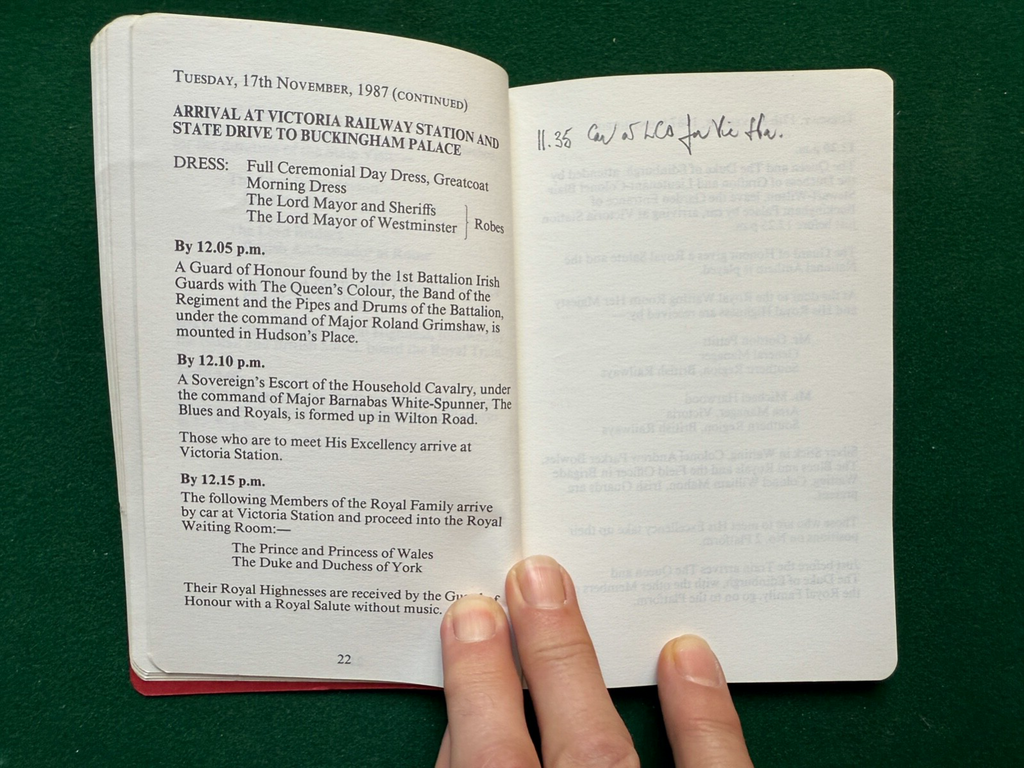 TUESDAY, 17th NOVEMBER, 1987 (CONTINUED)
ARRIVAL AT VICTORIA RAILWAY STATION AND
STATE DRIVE TO BUCKINGHAM PALACE
DRESS: Full Ceremonial Day Dress, Greatcoat
Morning Dress
The Lord Mayor and Sheriffs
The Lord Mayor of Westminster } Robes
By 12.05 p.m.
A Guard of Honour found by the 1st Battalion Irish
Guards with The Queen's Colour, the Band of the
Regiment and the Pipes and Drums of the Battalion,
under the command of Major Roland Grimshaw, is
mounted in Hudson's Place.
By 12.10 p.m.
A Sovereign's Escort of the Household Cavalry, under
the command of Major Barnabas White-Spunner, The
Blues and Royals, is formed up in Wilton Road.
Those who are to meet His Excellency arrive at
Victoria Station.
By 12.15 p.m.
The following Members of the Royal Family arrive
by car at Victoria Station and proceed into the Royal
Waiting Room:—
The Prince and Princess of Wales
The Duke and Duchess of York
Their Royal Highnesses are received by the Guard of
Honour with a Royal Salute without music.
22
11.35 Car at LCO for Vic Stn.